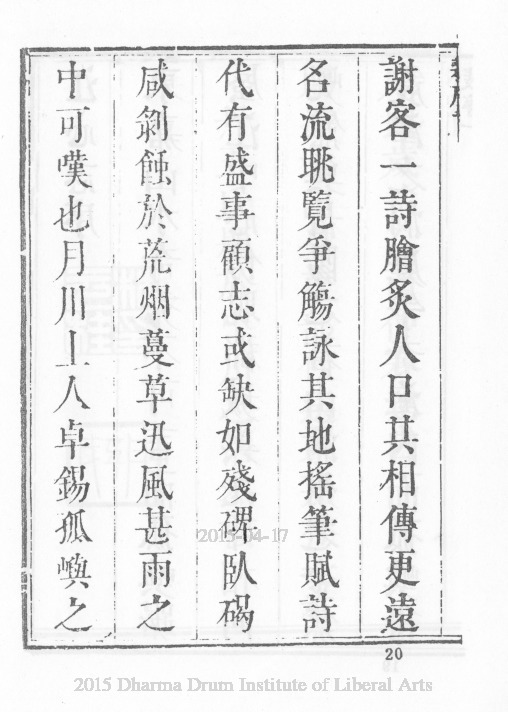 謝客一詩膾炙人口共相傳更遠
名流眺覽爭觴詠其地搖筆賦詩
代有盛事顧志或缺如殘碑臥碣
咸剝蝕於荒烟蔓草迅風甚雨之
中可嘆也月川上人卓錫孤嶼之
2015-04-17
20
2015 Dharma Drum Institute of Liberal Arts